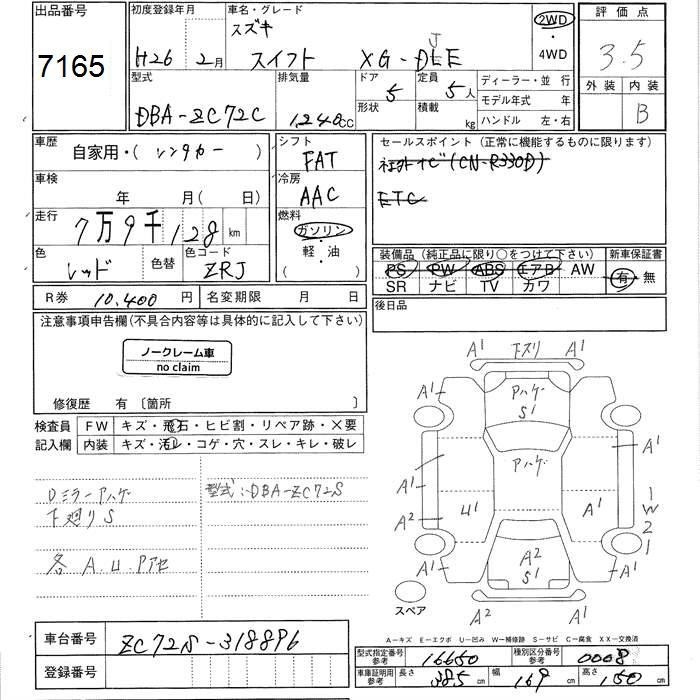 出品番号
7165
初度登録年月
H26 2月
車名・グレード
スズキ
スイフト XG-DJE
2WD
・
4WD
評価点
3.5
外装 内装
B
型式
DBA-ZC72C
排気量
1,240cc
ドア
形状
5
定員 5人
積載 kg
ディーラー・並 行
モデル年式 年
ハンドル 左・右
車歴
自家用・( レンタカー )
車検
年 月( 日)
走行
7万9千128km
色
レッド
色替
色コード
ZRJ
シフト
FAT
冷房
AAC
燃料
ガソリン
・
軽・油
( )
セールスポイント(正常に機能するものに限ります)
社外ナビ(CN-R330D)
ETC
装備品(純正品に限り○をつけて下さい)
PS PW ABS エアB AW
SR ナビ TV カワ
新車保証書
有・無
R券 10,400円
名変期限 月 日
後日品
注意事項申告欄(不具合内容等は具体的に記入して下さい)
ノークレーム車
no claim
修復歴 有〔箇所 〕
検査員
記入欄
FW キズ・飛石・ヒビ割・リペア跡・X要
内装 キズ・汚レ・コゲ・穴・スレ・キレ・破レ
Dミラーアハゲ
下廻りS
各A.U.Pアセ
型式:DBA-ZC72S
A1 下スリ A1
A1 Pハゲ S1 A1
Pハゲ
A1 A1
A1
A2 U1 A1 1W2
A1 A2 S1 A1
A2 A1
スペア
A−キズ E−エクボ U−凹み W−補修跡 S−サビ C−腐食 XX−交換済
車台番号
ZC72S-318896
登録番号
型式指定番号
参考
16650
種別区分番号
参考
0008
車庫証明用
参考
長さ 385cm
幅 169cm
高さ 150cm